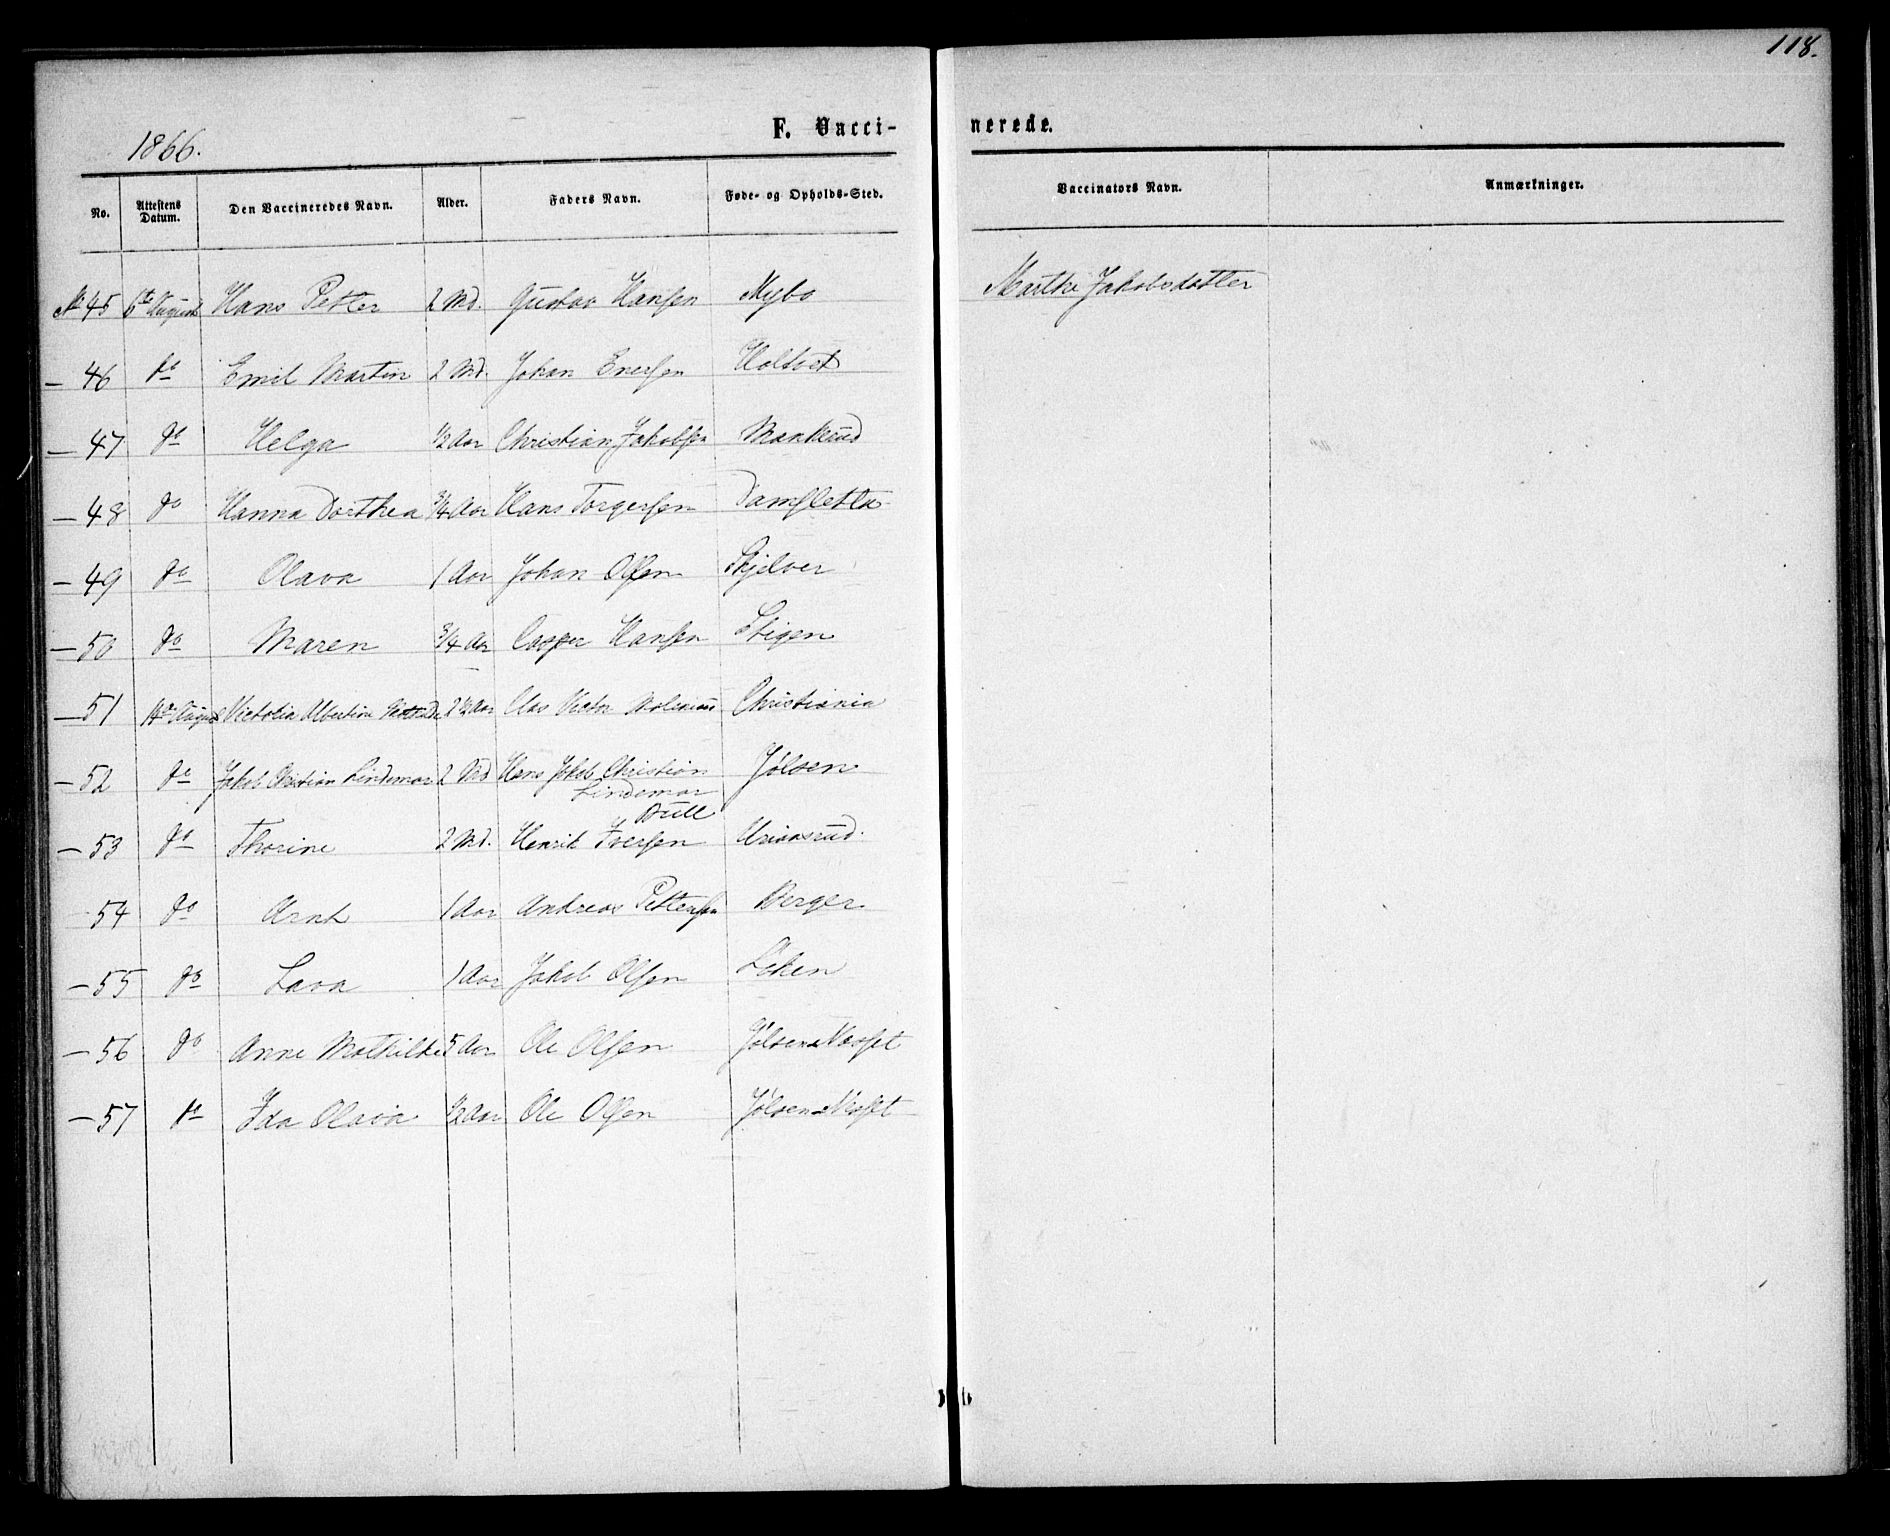 118.
1866.
F. Vacci-
nerede.
No. Attestens Datum. Den Vaccineredes Navn. Alder. Faders Navn. Føde- og Opholds-Sted. Vaccinators Navn. Anmærkninger.
No 45 6te August Hans Petter 2 Md. Gustav Hansen Nybo Marthe Jakobsdatter
— 46 do Emil Martin 2 Md. Johan Enersen Holtvet
— 47 do Helga 1/2 Aar Christian Jakobsen Mankerud
— 48 do Hanna Dorthea 3/4 Aar Hans Torgersen Damsletta
— 49 do Olava 1 Aar Johan Olsen Skjelver
— 50 do Maren 3/4 Aar Casper Hansen Stigen
— 51 August Victoria Albertine 2 1/2 Aar Clas Victor Christiania
— 52 do Jakob Christian Lindemar 2 Md Hans Jakob Christian Jølsen
Lindemar
Bull
— 53 do Thorine 2 Md. Henrik Iversen
54 do Arnt 1 Aar Andreas Pettersen Berger
— 55 do Lava 1 Aar Jakob Olsen Løken
— 56 do Anne Mathilde 5 Aar Ole Olsen Jølsen Næsset
— 57 do Ida Olava 1/2 Aar Ole Olsen Jølsen Næsset